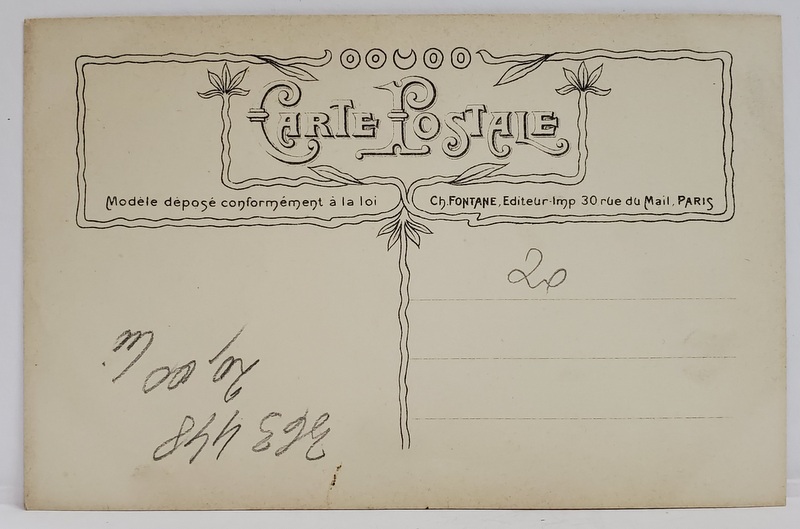 CARTE POSTALE
Modèle déposé conformément à la loi
Ch. FONTANE, Editeur-Imp 30 rue du Mail, PARIS
20
363 448
20,00 lei